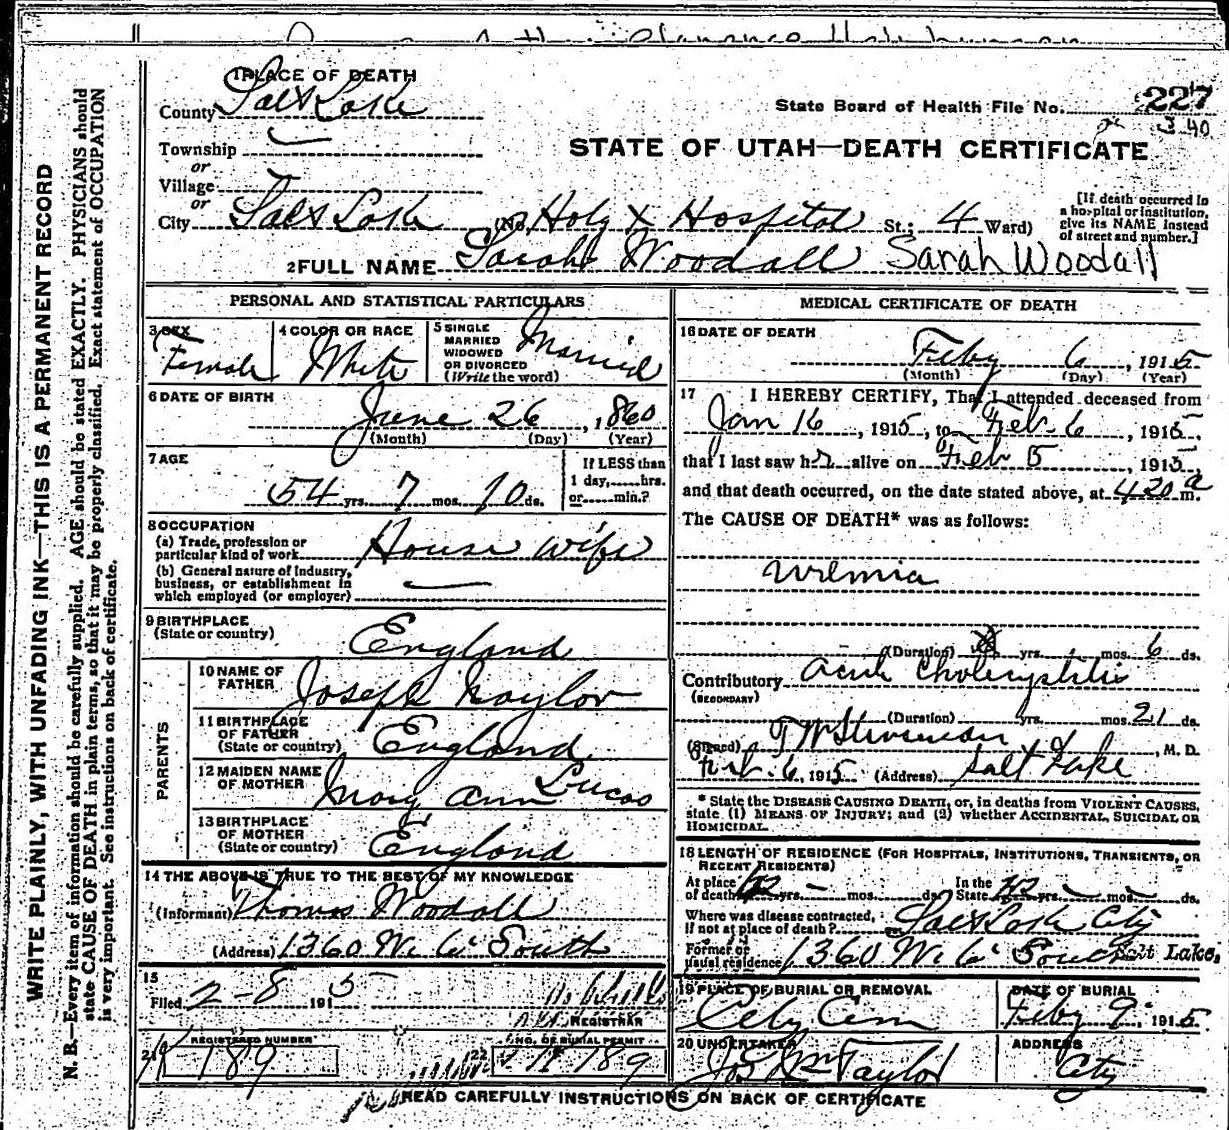 1 PLACE OF DEATH
County Salt Lake
State Board of Health File No. 227
3 40
Township
or
STATE OF UTAH—DEATH CERTIFICATE
Village
or
City Salt Lake (No. Holy X Hospital St.; 4 Ward)
[If death occurred in a hospital or institution, give its NAME instead of street and number.]
2 FULL NAME Sarah Woodall Sarah Woodall
WRITE PLAINLY, WITH UNFADING INK—THIS IS A PERMANENT RECORD
N. B.—Every item of information should be carefully supplied. AGE should be stated EXACTLY. PHYSICIANS should
state CAUSE OF DEATH in plain terms, so that it may be properly classified. Exact statement of OCCUPATION
is very important. See instructions on back of certificate.
PERSONAL AND STATISTICAL PARTICULARS
3 SEX Female
4 COLOR OR RACE White
5 SINGLE
MARRIED
WIDOWED
OR DIVORCED
(Write the word) Married
6 DATE OF BIRTH
June 26, 1860
(Month) (Day) (Year)
7 AGE
54 yrs. 7 mos. 10 ds.
If LESS than
1 day, hrs.
or min.?
8 OCCUPATION
(a) Trade, profession or
particular kind of work House wife
(b) General nature of industry,
business, or establishment in
which employed (or employer)
9 BIRTHPLACE
(State or country) England
PARENTS
10 NAME OF
FATHER Joseph Naylor
11 BIRTHPLACE
OF FATHER
(State or country) England
12 MAIDEN NAME
OF MOTHER Mary Ann Lucas
13 BIRTHPLACE
OF MOTHER
(State or country) England
14 THE ABOVE IS TRUE TO THE BEST OF MY KNOWLEDGE
(Informant) Thomas Woodall
(Address) 1360 W. 6 South
15
Filed 2-8 1915
REGISTRAR
21 REGISTERED NUMBER
K 189
22 NO. OF BURIAL PERMIT
K 189
MEDICAL CERTIFICATE OF DEATH
16 DATE OF DEATH
Feby 6, 1915
(Month) (Day) (Year)
17 I HEREBY CERTIFY, That I attended deceased from
Jan 16, 1915, to Feb. 6, 1915,
that I last saw her alive on Feb 5, 1915,
and that death occurred, on the date stated above, at 420 a m.
The CAUSE OF DEATH* was as follows:
Uremia
(Duration) yrs. mos. 6 ds.
Contributory Acute Cholecystitis
(SECONDARY)
(Duration) yrs. mos. 21 ds.
(Signed) T W Stevenson, M. D.
Feb. 6, 1915 (Address) Salt Lake
* State the DISEASE CAUSING DEATH, or, in deaths from VIOLENT CAUSES,
state (1) MEANS OF INJURY; and (2) whether ACCIDENTAL, SUICIDAL OR
HOMICIDAL.
18 LENGTH OF RESIDENCE (FOR HOSPITALS, INSTITUTIONS, TRANSIENTS, OR
RECENT RESIDENTS)
At place
of death yrs. mos. ds. In the
State 42 yrs. mos. ds.
Where was disease contracted,
if not at place of death? Salt Lake City
Former or
usual residence 1360 W. 6 South Salt Lake.
19 PLACE OF BURIAL OR REMOVAL
City Cem
DATE OF BURIAL
Feby 9, 1915
20 UNDERTAKER
Jos Wm Taylor
ADDRESS
City
READ CAREFULLY INSTRUCTIONS ON BACK OF CERTIFICATE